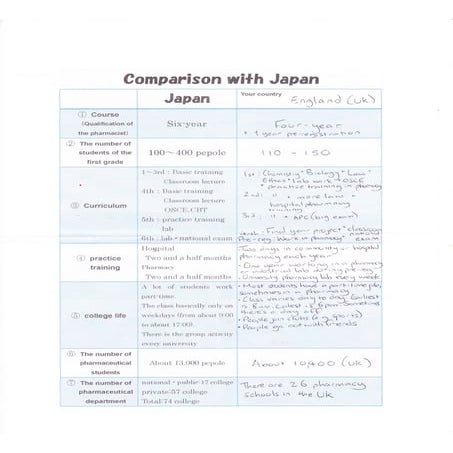 Comparison with Japan
Japan
Your country England (UK)
① Course
(Qualification of
the pharmacist)
Six-year
Four-year
+ 1 year pre-registration
② The number of
students of the
first grade
100~400 pepole
110 - 150
③ Curriculum
1~3rd : Basic training
Classroom lecture
4th : Basic training
Classroom lecture
OSCE,CBT
5th : practice training
lab
6th : lab・national exam
1st: Chemistry Biology Law
Ethics Lab work OSCE
practice training in pharmacy
2nd: " + more law +
hospital pharmacy
training
3rd: " + APC (big exam)
4th: Final year project classroom
Pre-reg: Work in pharmacy national exam
④ practice
training
Hospital
Two and a half months
Pharmacy
Two and a half months
Two days in community + hospital
pharmacy each year
One year working in a pharmacy
or industrial lab during pre-reg
University pharmacy lab every week
⑤ college life
A lot of students work
part-time.
The class basically only on
weekdays (from about 9:00
to about 17:00).
There is the group activity
every university
Most students have a part-time job,
sometimes in pharmacy
Class varies day to day. Earliest
is 9am. Latest is 6pm. Sometimes
there's a day off
People join clubs (e.g. sports)
People go out with friends
⑥ The number of
pharmaceutical
students
About 13,000 pepole
About 10,400 (UK)
⑦ The number of
pharmaceutical
department
national・public:17 college
private:57 college
Total:74 college
There are 26 pharmacy
schools in the UK